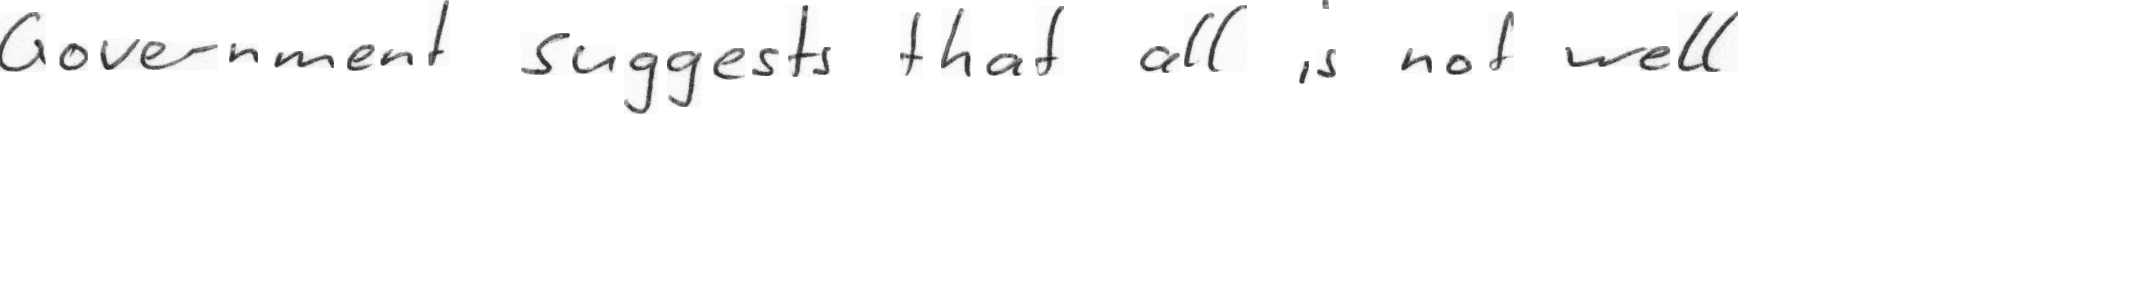 Government suggests that all is not well